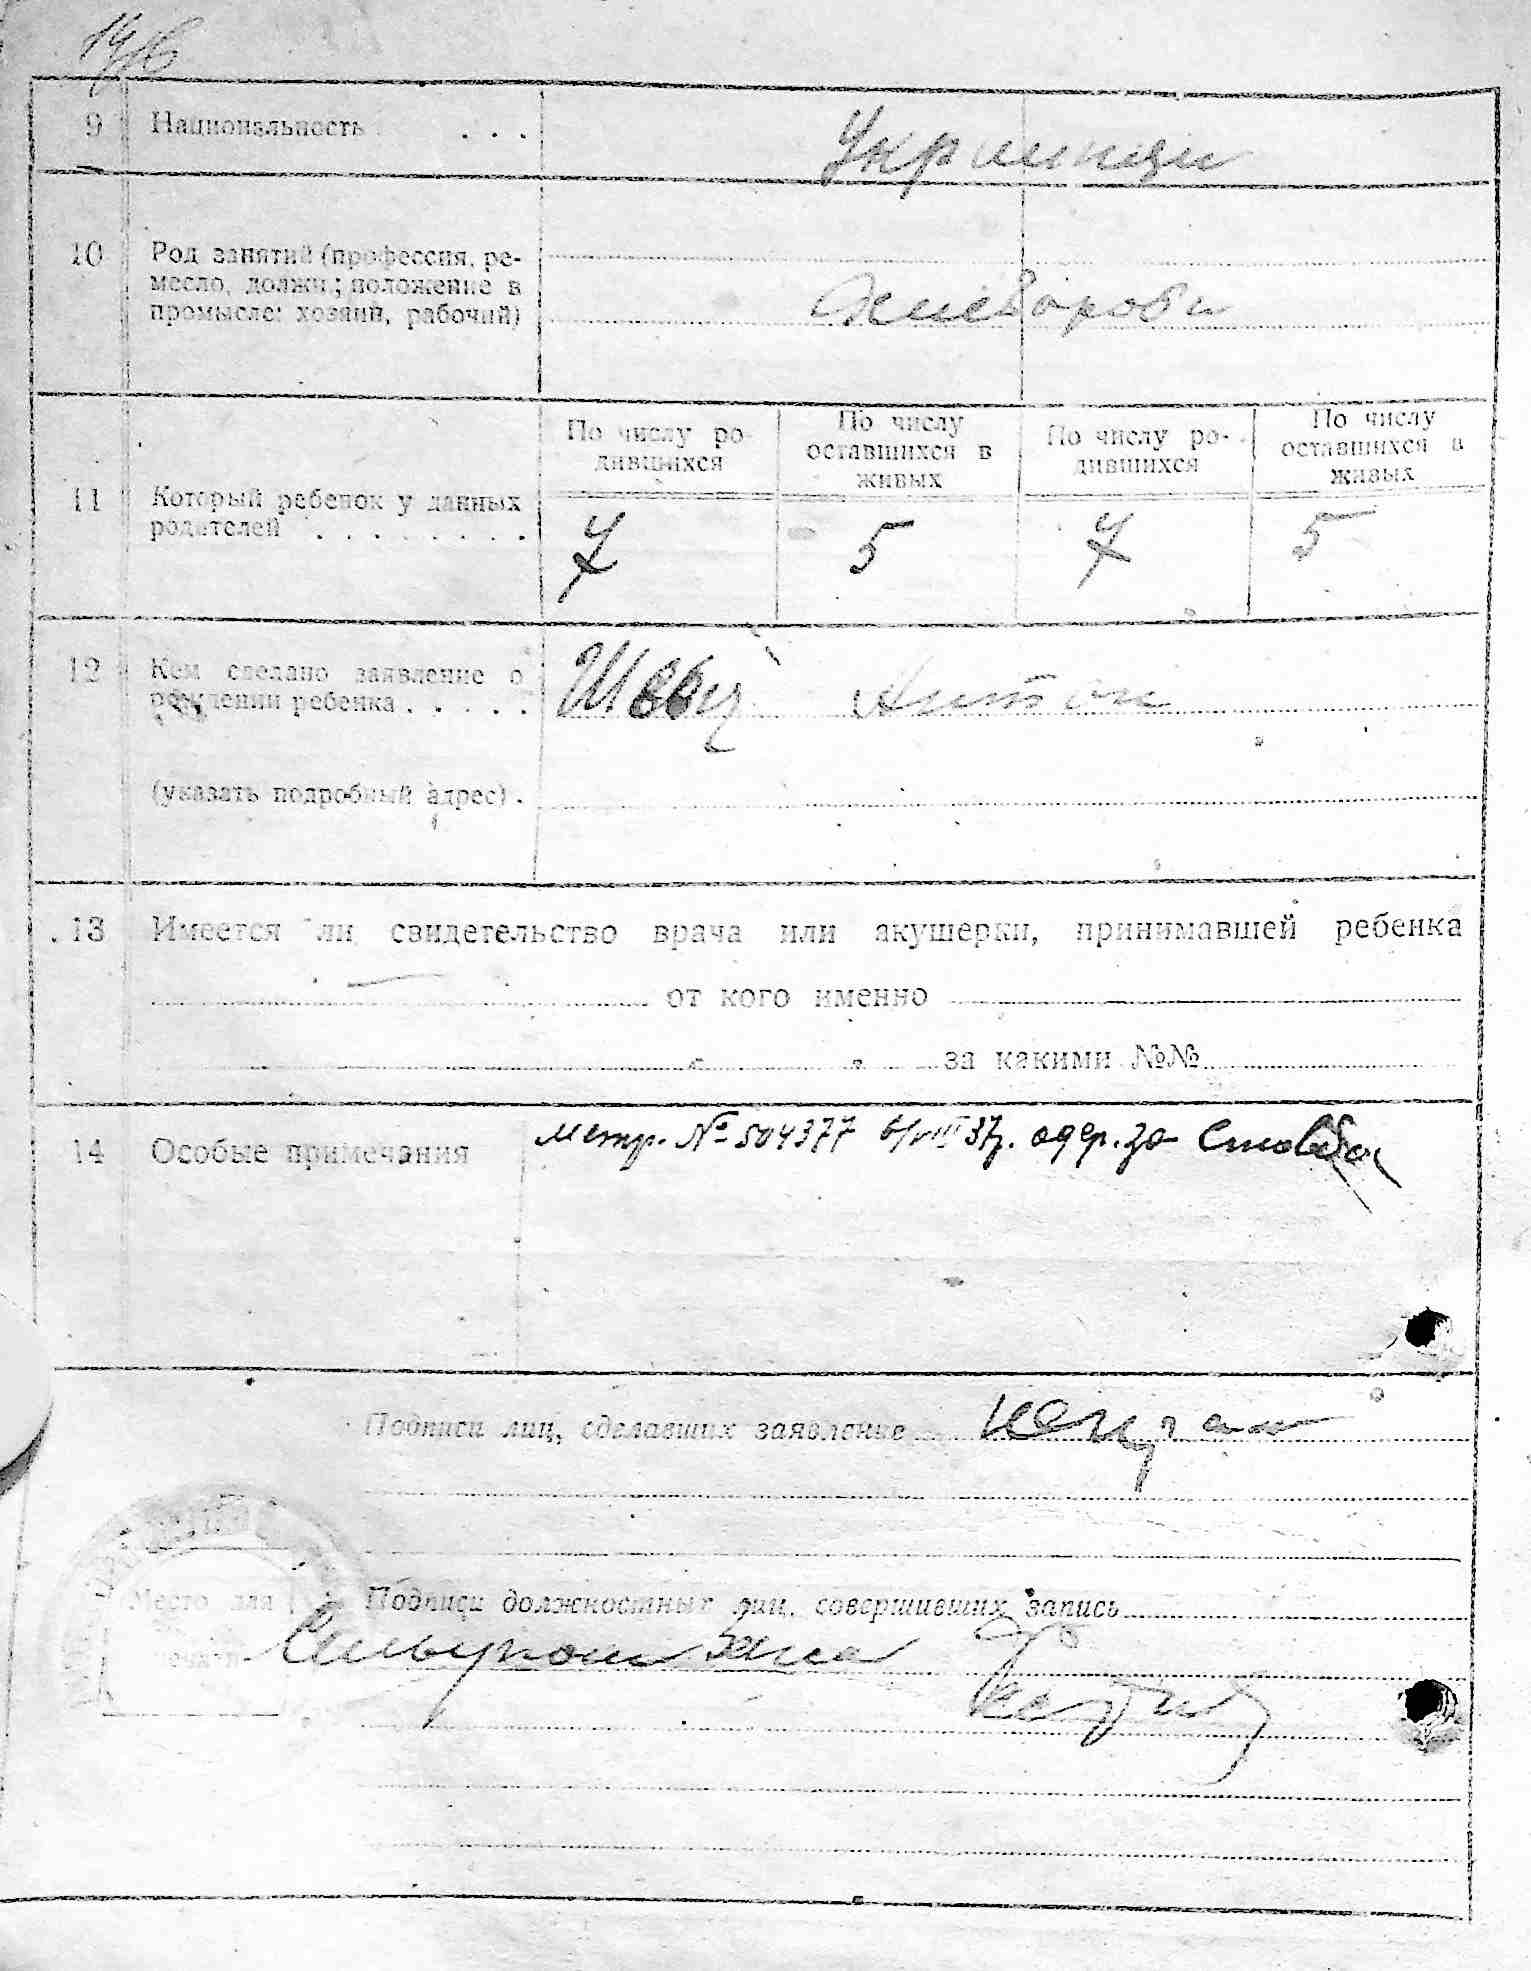 9 Национальность . . . Украинци
10 Род занятий (профессия, ре-
месло, должн.; положение в
промысле: хозяин, рабочий) Хлебороби
По числу ро-
дившихся
По числу
оставшихся в
живых
По числу ро-
дившихся
По числу
оставшихся в
живых
11 Который ребенок у данных
родителей . . . . . . . .
7 5 7 5
12 Кем сделано заявление о
рождении ребенка . . . . . Швец Антон
(указать подробный адрес) .
13 Имеется ли свидетельство врача или акушерки, принимавшей ребенка
от кого именно
за какими №№
14 Особые примечания
метр. № 504377 6/VIII 37р. одер. за
Подписи лиц, сделавших заявление
Подписи должностных лиц, совершивших запись
Место для
печати